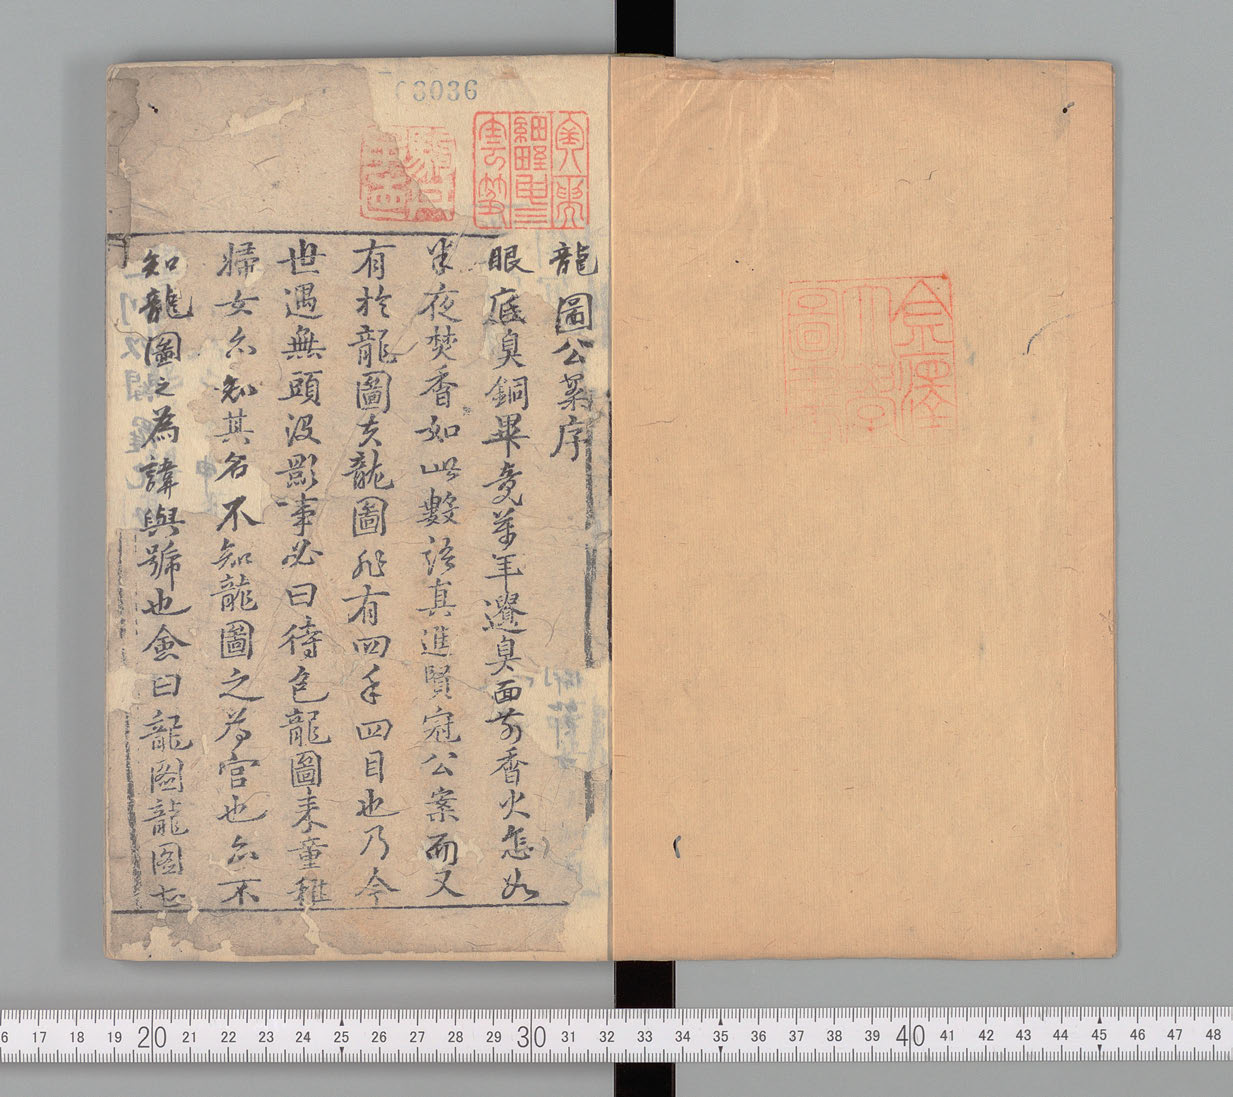 龍圖公案序
眼底臭銅畢竟萬年遺臭面前香火怎如
半夜焚香如此數語真進賢冠公案而又
有於龍圖夫龍圖非有四手四目也乃今
世遇無頭沒影事必曰待包龍圖來童稚
婦女亦知其名不知龍圖之為官也亦不
知龍圖之為諱與號也僉曰龍圖龍圖云
6036
6 17 18 19 20 21 22 23 24 25 26 27 28 29 30 31 32 33 34 35 36 37 38 39 40 41 42 43 44 45 46 47 48